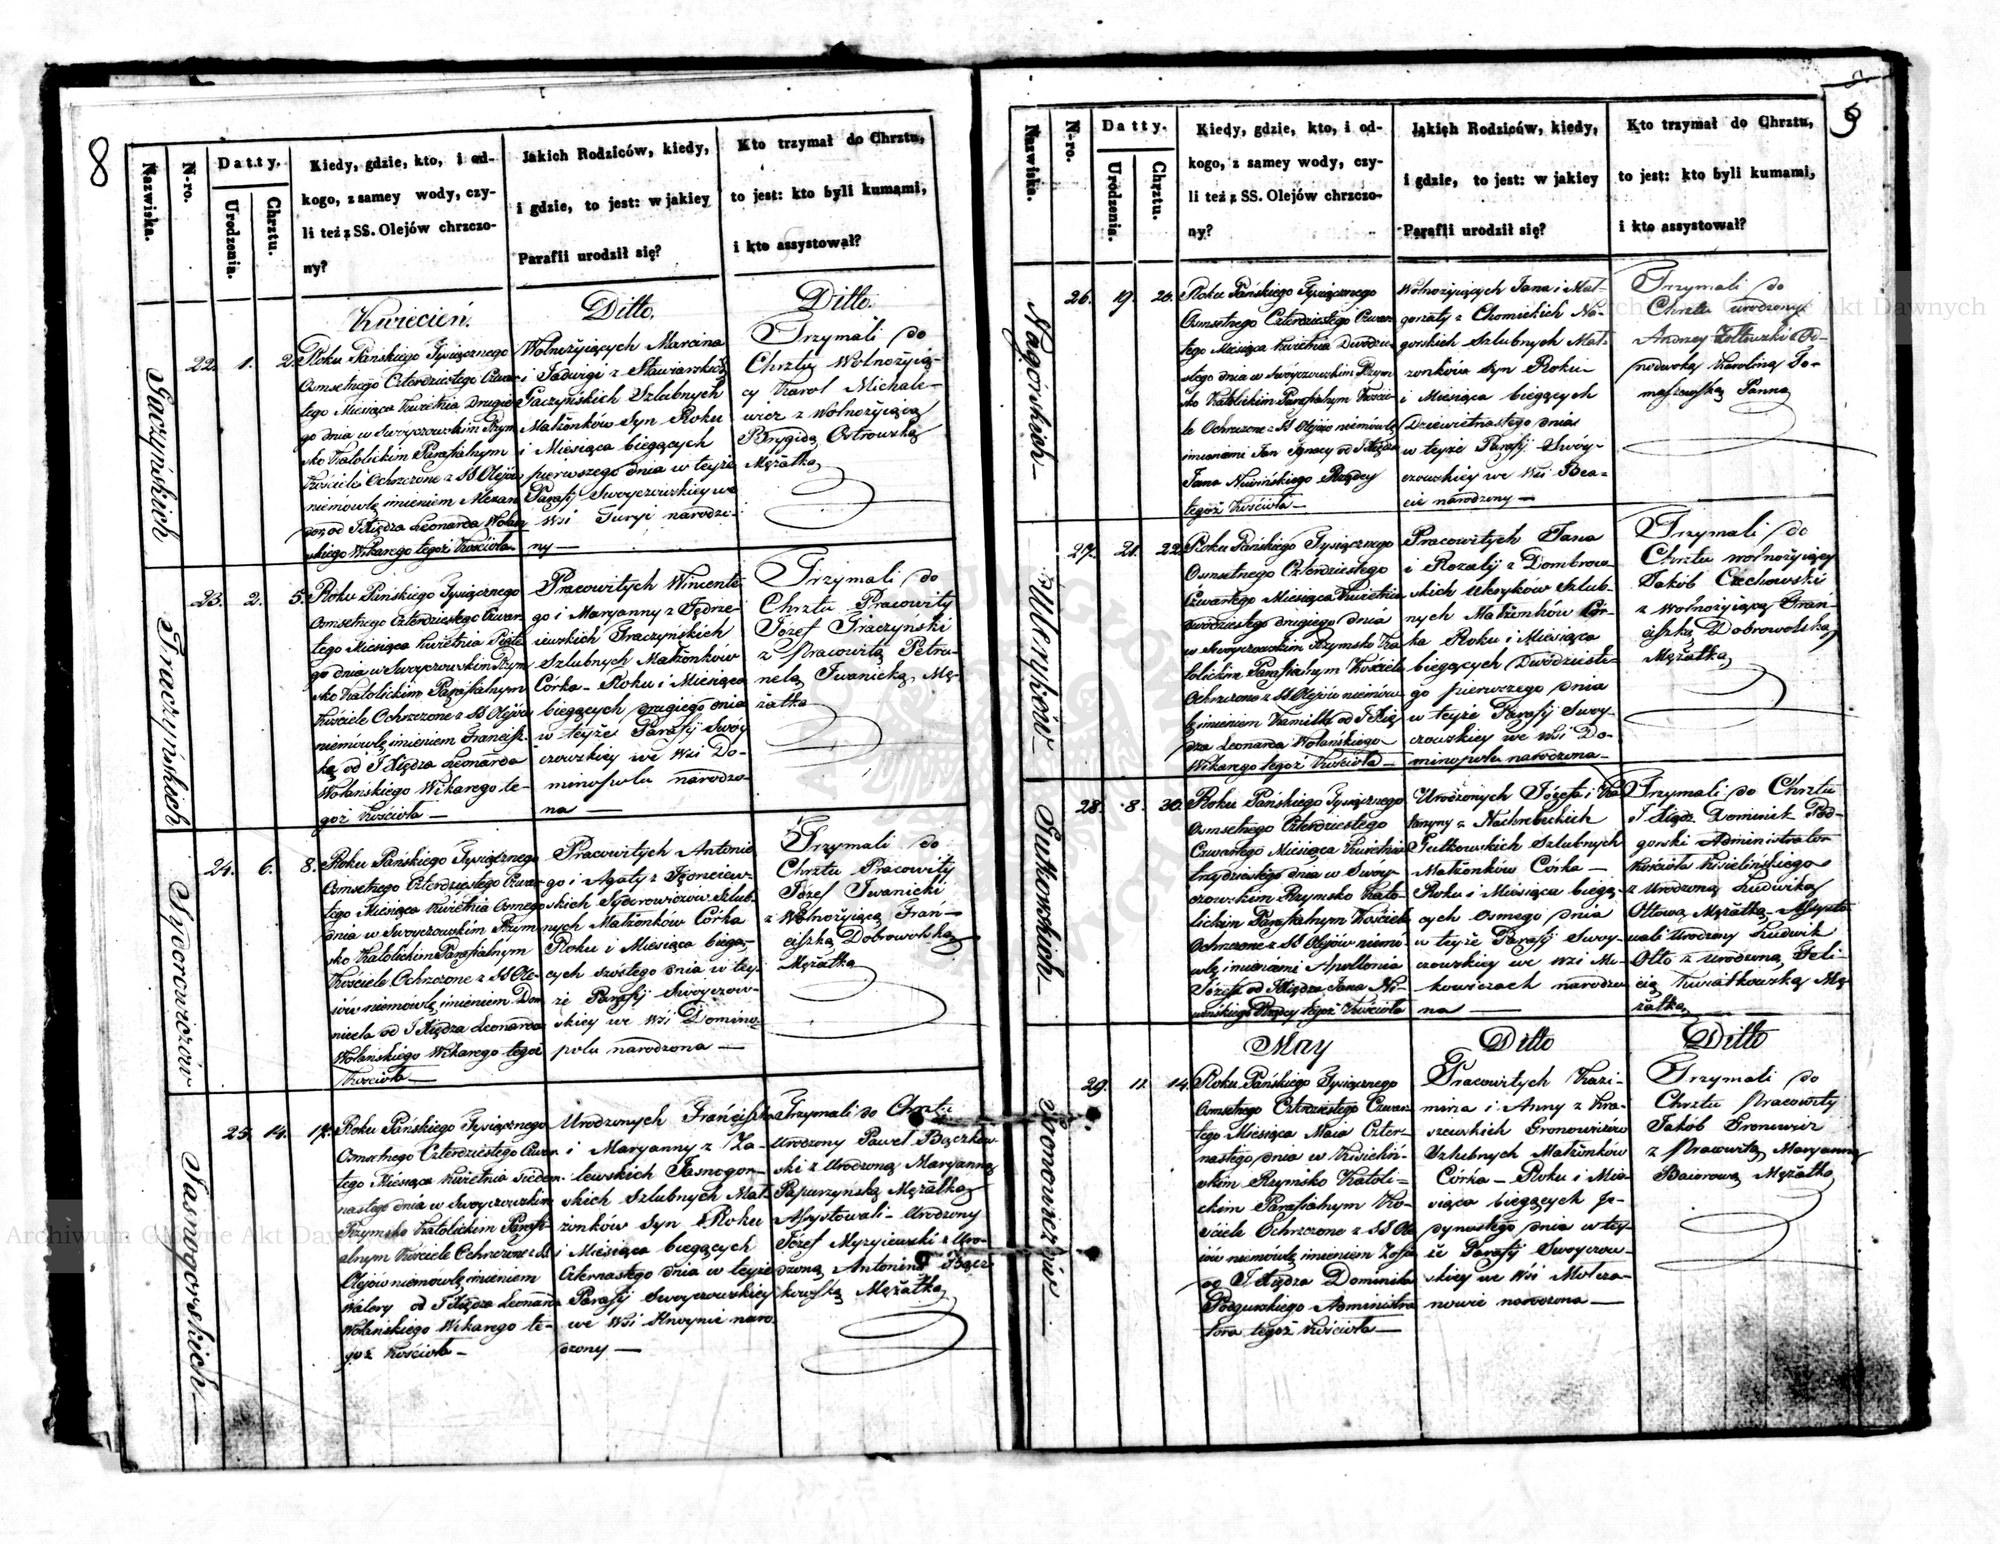 8
Nazwiska.
N-ro.
Datty.
Urodzenia.
Chrztu.
Kiedy, gdzie, kto, i od-
kogo, z samey wody, czy-
li też z SS. Olejów chrzczo-
ny?
Jakich Rodziców, kiedy,
i gdzie, to jest: w jakiey
Parafii urodził się?
Kto trzymał do Chrztu,
to jest: kto byli kumami,
i kto assystował?
Kwiecień.
Ditto.
Ditto.
22. 1. 2.
Roku Pańskiego Tysiącznego
Osmsetnego Czterdziestego Czwar-
tego Miesiąca Kwietnia Drugie-
go dnia w Swoyczowskim Rzym-
sko Katolickim Parafialnym
Kościele Ochrzczone z SS Olejów
niemówlę imieniem Alexan
der od JXiędza Leonarda Wolań
skiego Wikarego tegoż Kościoła
Wolnożyiących Marcina
i Jadwigi z
Gaczyńskich Szlubnych
Małżonków Syn Roku
i Miesiąca biegących
pierwszego dnia w teyże
Parafij Swoyczowskiey we
Wsi Turyi narodzo-
ny —
Trzymali do
Chrztu Wolnożyią-
cy Karol Michale-
wicz z Wolnożyiącą
Brygidą Ostrowską
Mężatką
23. 2. 5.
Roku Pańskiego Tysiącznego
Osmsetnego Czterdziestego Czwar-
tego Miesiąca Kwietnia Piąte-
go dnia w Swoyczowskim Rzym-
sko Katolickim Parafialnym
Kościele Ochrzczone z SS Olejów
niemówlę imieniem Francisz-
ka od JXiędza Leonarda
Wolańskiego Wikarego te-
goż Kościoła —
Pracowitych Wincente
go i Maryanny z Jędrze-
iewskich Traczyńskich
Szlubnych Małżonków
Córka - Roku i Miesiąca
biegących drugiego dnia
w teyże Parafij Swoy-
czowskiey we Wsi Do-
minopolu narodzo-
na —
Trzymali do
Chrztu Pracowity
Józef Traczynski
z Pracowitą Petro-
nelą Iwanicką Mę-
żatką
Traczyńskich
24. 6. 8.
Roku Pańskiego Tysiącznego
Osmsetnego Czterdziestego Czwar-
tego Miesiąca Kwietnia Osmego
dnia w Swoyczowskim Rzym-
sko Katolickim Parafialnym
Kościele Ochrzczone z SS Ole-
iów niemówlę imieniem Dom
nicela od JXiędza Leonarda
Wolańskiego Wikarego tegoż
Kościoła —
Pracowitych Antonie
go i Agaty z
skich Sydorowiczów Szlub-
nych Małżonków Córka
Roku i Miesiąca biegą-
cych szóstego dnia w tey-
że Parafij Swoyczow-
skiey we Wsi Domino-
polu narodzona —
Trzymali do
Chrztu Pracowity
Józef Iwanicki
z Wolnożyiącą Fran-
ciszką Dobrowolską
Mężatką
Sydorowiczów
25. 14. 17.
Roku Pańskiego Tysiącznego
Osmsetnego Czterdziestego Czwar-
tego Miesiąca Kwietnia Siedem
nastego dnia w Swoyczowskim
Rzymsko Katolickim Parafi-
alnym Kościele Ochrzczone z SS
Olejów niemówlę imieniem
Walery od JXiędza Leonarda
Wolańskiego Wikarego te-
goż Kościoła —
Urodzonych Franciszka
i Maryanny z Za-
lewskich Jasnogor-
skich Szlubnych Mał-
żonków Syn Roku
i Miesiąca biegących
Czternastego dnia w teyże
Parafij Swoyczowskiey
we Wsi Hnoynie naro
dzony —
Trzymali do Chrztu
Urodzony Paweł Bączkow
ski z Urodzoną Maryanną
Papurzynską Mężatką
Assystowali - Urodzony
Józef Myszyiewski z Uro-
dzoną Antoniną Bącz-
kowską Mężatką
Jasnogorskich —
9
Nazwiska.
N-ro.
Datty.
Uródzenia.
Chrztu.
Kiedy, gdzie, kto, i od-
kogo, z samey wody, czy-
li też z SS. Olejów chrzczo-
ny?
Jakich Rodziców, kiedy,
i gdzie, to jest: w jakiey
Parafii urodził się?
Kto trzymał do Chrztu,
to jest: kto byli kumami,
i kto assystował?
26. 19. 20.
Roku Pańskiego Tysiącznego
Osmsetnego Czterdziestego Czwar-
tego Miesiąca Kwietnia Dwudzie-
stego dnia w Swoyczowskim Rzym-
sko Katolickim Parafialnym Kości-
le Ochrzczone z SS Olejów niemówlę
imionami Jan Ignacy od JXiędza
Jana Rządcy
tegoż Kościoła —
Wolnożyiących Jana i Mał-
gorzaty z Chomickich Na-
gorskich Szlubnych Mał-
żonków Syn Roku
i Miesiąca biegących
Dziewiętnastego dnia
w teyże Parafij Swoy-
czowskiey we Wsi Bea-
cie narodzony —
Trzymali do
Chrztu Urodzony
Andrzey Żółtowski z
Karoliną To-
maszewską Panną
Nagórskich —
27. 21. 22.
Roku Pańskiego Tysiącznego
Osmsetnego Czterdziestego
Czwartego Miesiąca Kwietnia
dwódziestego drugiego dnia
w Swoyczowskim Rzymsko Ka
tolickim Parafialnym Kościele
Ochrzczone z SS Olejów niemów
lę imieniem Kamilla od JXię
dza Leonarda Wolańskiego
Wikarego tegoż Kościoła —
Pracowitych Jana
i Rozalij z Dombrow-
skich Szlub-
nych Małżonków Cór-
ka Roku i Miesiąca
biegących Dwódzieste-
go pierwszego dnia
w teyże Parafij Swoy-
czowskiey we Wsi Do-
minopolu narodzona —
Trzymali do
Chrztu wolnożyiący
Jakób Czechowski
z Wolnożyiącą Fran-
ciszką Dobrowolską
Mężatką
28. 8. 30.
Roku Pańskiego Tysiącznego
Osmsetnego Czterdziestego
Czwartego Miesiąca Kwietnia
trzydziestego dnia w Swoy-
czowskim Rzymsko Kato-
lickim Parafialnym Kościele
Ochrzczone z SS Olejów niemó-
wlę imionami Apollonia
Józefa od JXiędza Jana
Rządcy tegoż Kościoła
Urodzonych Józefa i Ka
tarzyny z Nachrebeckich
Gutkowskich Szlubnych
Małżonków Córka —
Roku i Miesiąca biegą-
cych Osmego dnia
w teyże Parafij Swoy-
czowskiey we Wsi Mi-
kowiczach narodzo
na —
Trzymali do Chrztu
JXiądz Dominik Pod-
gorski Administrator
Kościoła Kisielińskiego
z Urodzoną Ludwiką
Ottową Mężatką - Assysto
wali Urodzony Ludwik
Otto z Urodzoną Feli-
cią Kwiatkowską Mę
żatką
Gutkowskich.
May
Ditto
Ditto
29. 11. 14.
Roku Pańskiego Tysiącznego
Osmsetnego Czterdziestego Czwar-
tego Miesiąca Maia Czter-
nastego dnia w Kisieliń-
skim Rzymsko Katoli-
ckim Parafialnym Ko-
ściele Ochrzczone z SS Ole
iów niemówlę imieniem Zofia
od JXiędza Dominika
Podgurskiego Administra
tora tegoż Kościoła —
Pracowitych Kazi-
mirza i Anny z Kra-
szewskich Gronowiczów
Szlubnych Małżonków
Córka — Roku i Mie-
siąca biegących Je-
dynastego dnia w tey-
że Parafij Swoyczow-
skiey we Wsi Molcza-
nowie narodzona —
Trzymali do
Chrztu Pracowity
Jakób Gronowicz
z Pracowitą Maryanną
Baiorową Mężatką
Gronowiczów —
Archiwum Główne Akt Dawnych
Archiwum Główne Akt Dawnych